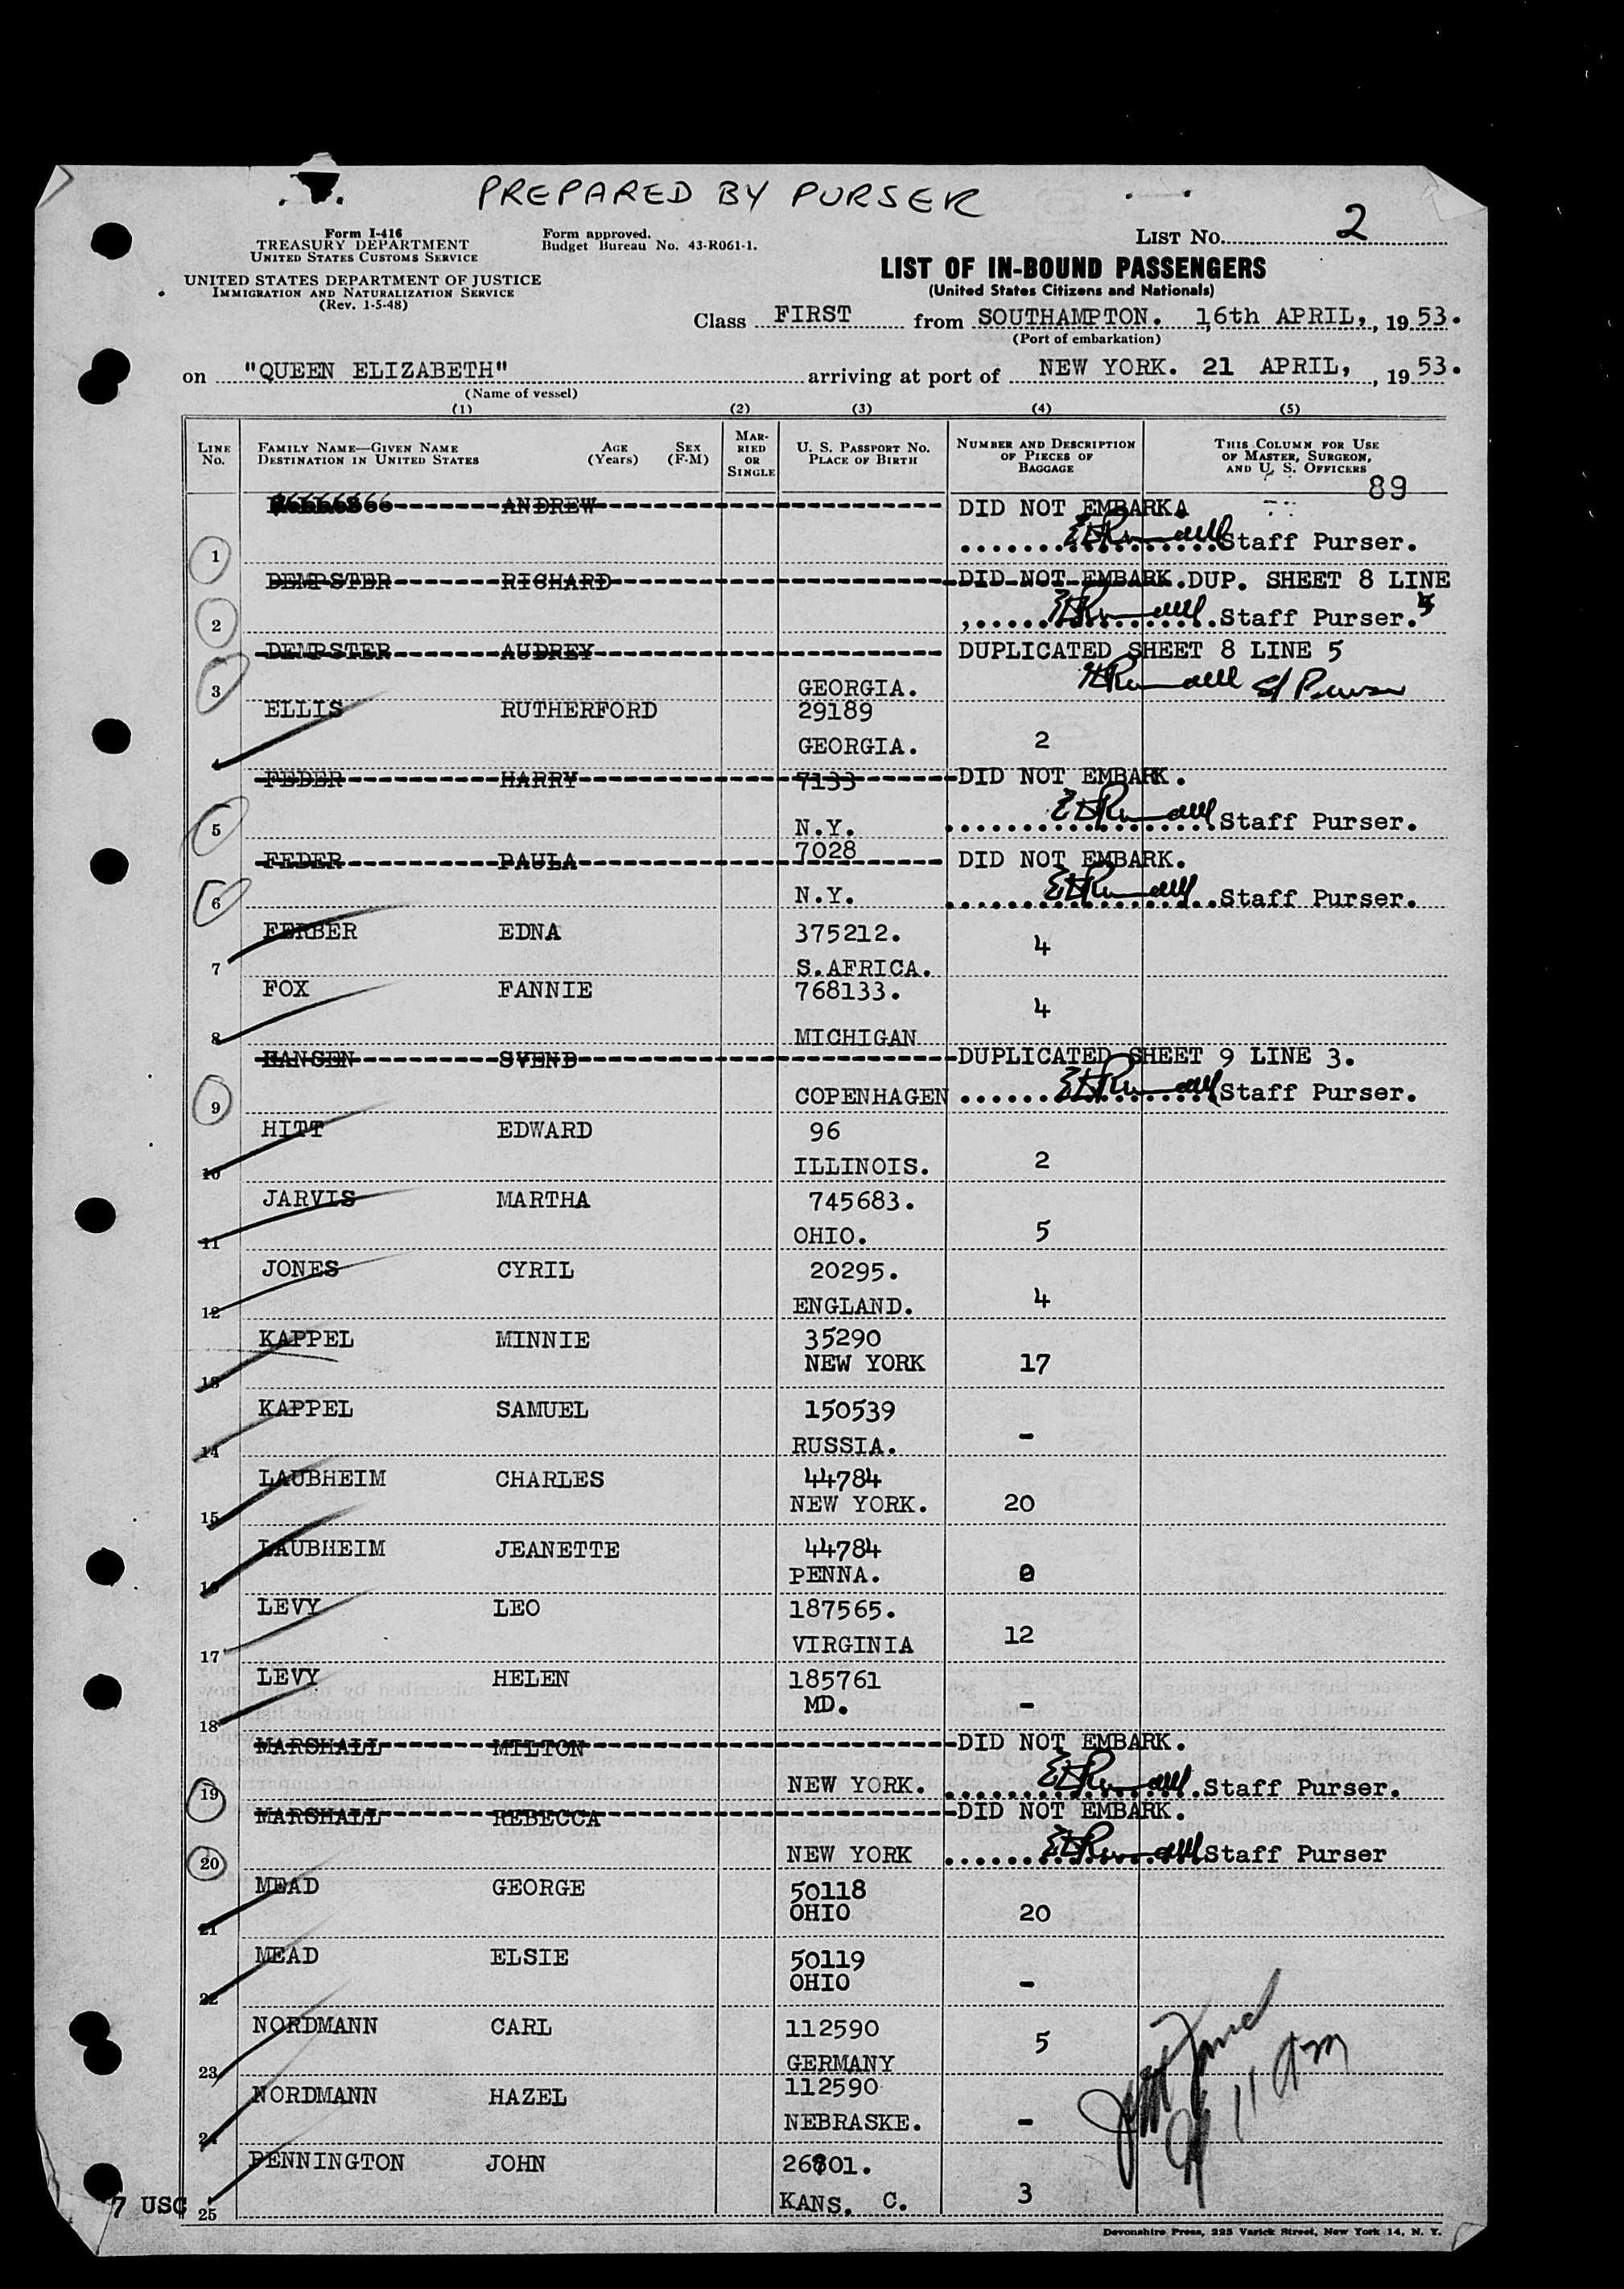 PREPARED BY PURSER
Form I-416
TREASURY DEPARTMENT
UNITED STATES CUSTOMS SERVICE
UNITED STATES DEPARTMENT OF JUSTICE
IMMIGRATION AND NATURALIZATION SERVICE
(Rev. 1-5-48)
Form approved.
Budget Bureau No. 43-R061-1.
LIST No. 2
LIST OF IN-BOUND PASSENGERS
(United States Citizens and Nationals)
Class FIRST from SOUTHAMPTON. 16th APRIL, , 19 53.
(Port of embarkation)
on "QUEEN ELIZABETH" arriving at port of NEW YORK. 21 APRIL, , 19 53.
(Name of vessel)
(1) (2) (3) (4) (5)
LINE No.
FAMILY NAME—GIVEN NAME
DESTINATION IN UNITED STATES
AGE (Years)
SEX (F-M)
MARRIED OR SINGLE
U. S. PASSPORT NO.
PLACE OF BIRTH
NUMBER AND DESCRIPTION OF PIECES OF BAGGAGE
THIS COLUMN FOR USE OF MASTER, SURGEON, AND U. S. OFFICERS
89
ANDREW DID NOT EMBARKA
1 Staff Purser.
DEMPSTER RICHARD DID NOT EMBARK. DUP. SHEET 8 LINE
2 Staff Purser.
DEMPSTER AUDREY DUPLICATED SHEET 8 LINE 5
3 GEORGIA. S/ Purser
ELLIS RUTHERFORD 29189
GEORGIA. 2
FEDER HARRY 7133 DID NOT EMBARK.
5 N.Y. Staff Purser.
FEDER PAULA 7028 DID NOT EMBARK.
6 N.Y. Staff Purser.
FERBER EDNA 375212. 4
7 S.AFRICA.
FOX FANNIE 768133. 4
8 MICHIGAN
HANSEN SVEND DUPLICATED SHEET 9 LINE 3.
9 COPENHAGEN Staff Purser.
HITT EDWARD 96
10 ILLINOIS. 2
JARVIS MARTHA 745683.
11 OHIO. 5
JONES CYRIL 20295.
12 ENGLAND. 4
KAPPEL MINNIE 35290
13 NEW YORK 17
KAPPEL SAMUEL 150539
14 RUSSIA. -
LAUBHEIM CHARLES 44784
15 NEW YORK. 20
LAUBHEIM JEANETTE 44784
16 PENNA.
LEVY LEO 187565.
17 VIRGINIA 12
LEVY HELEN 185761
18 MD. -
MARSHALL MILTON DID NOT EMBARK.
19 NEW YORK. Staff Purser.
MARSHALL REBECCA DID NOT EMBARK.
20 NEW YORK Staff Purser
MEAD GEORGE 50118
21 OHIO 20
MEAD ELSIE 50119
22 OHIO -
NORDMANN CARL 112590 5
23 GERMANY
NORDMANN HAZEL 112590
24 NEBRASKE. -
PENNINGTON JOHN 26801.
25 KANS. C. 3
11 Am
7 USC
Devonshire Press, 225 Varick Street, New York 14, N. Y.